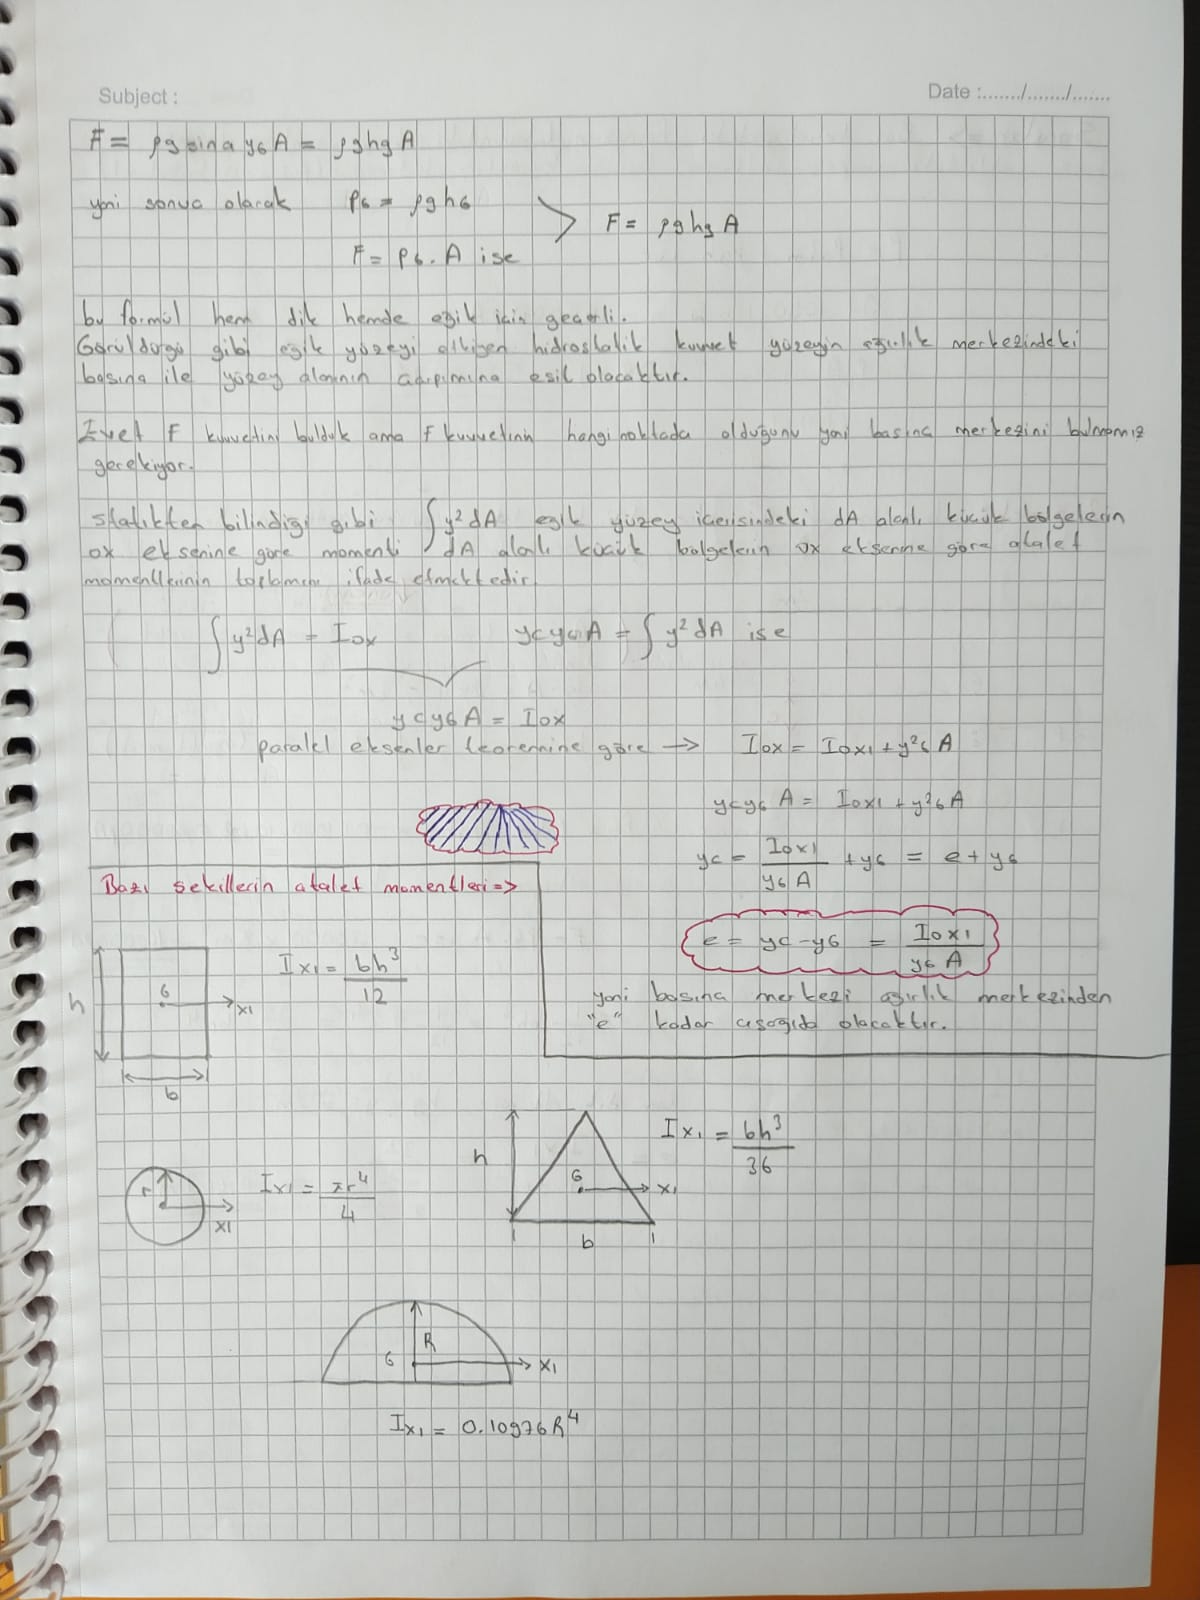 Subject :
Date :......./......./.......
F = ρg sina yG A = ρghg A
yani sonuc olarak PG = ρghG
F = ρghg A
F = PG . A ise
bu formül hem dik hemde egik icin gecerli.
Görüldügü gibi egik yüzeyi etkiyen hidrostatik kuvvet yüzeyin agırlık merkezindeki
basınc ile yüzey alanının carpımına esit olacaktır.
Evet F kuvvetini bulduk ama F kuvvetinin hangi noktada olduğunu yani basınc merkezini bulmamız
gerekiyor.
statikten bilindiği gibi ∫y² dA egik yüzey icerisindeki dA alanlı kücük bölgelerin
ox eksenine göre momenti dA alanlı kücük bolgelerin ox eksenine göre atalet
momentlerinin toplamını ifade etmektedir.
∫y² dA = Iox yc yG A = ∫y² dA ise
yc yG A = Iox
paralel eksenler teoremine göre → Iox = Iox1 + y²G A
yc yG A = Iox1 + y²G A
yc = Iox1 / yG A + yG = e + yG
Bazı sekillerin atalet momentleri =>
e = yc - yG = Iox1 / yG A
yani basınc merkezi agırlık merkezinden
"e" kadar asagıda olacaktır.
Ix1 = bh³ / 12
h
G
x1
b
Ix1 = bh³ / 36
h
G
x1
b
r
x1
Ix1 = πr⁴ / 4
R
G
x1
Ix1 = 0.10976R⁴